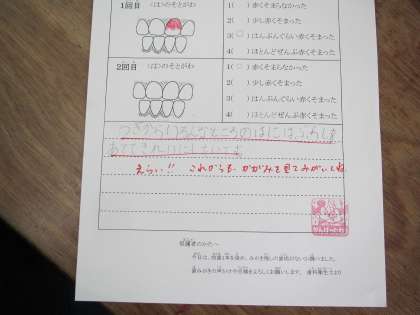 1回目
（は）のそとがわ
1( ) 赤くそまらなかった
2( ) 少し赤くそまった
3(○) はんぶんぐらい赤くそまった
4( ) ほとんどぜんぶ赤くそまった
2回目
（は）のそとがわ
1(○) 赤くそまらなかった
2( ) 少し赤くそまった
3( ) はんぶんぐらい赤くそまった
4( ) ほとんどぜんぶ赤くそまった
つぎからいろんなところのはにはぶらしを
あててきれいにしたいです
えらい!! これからも かがみを見てみがいてね
保護者のかたへ